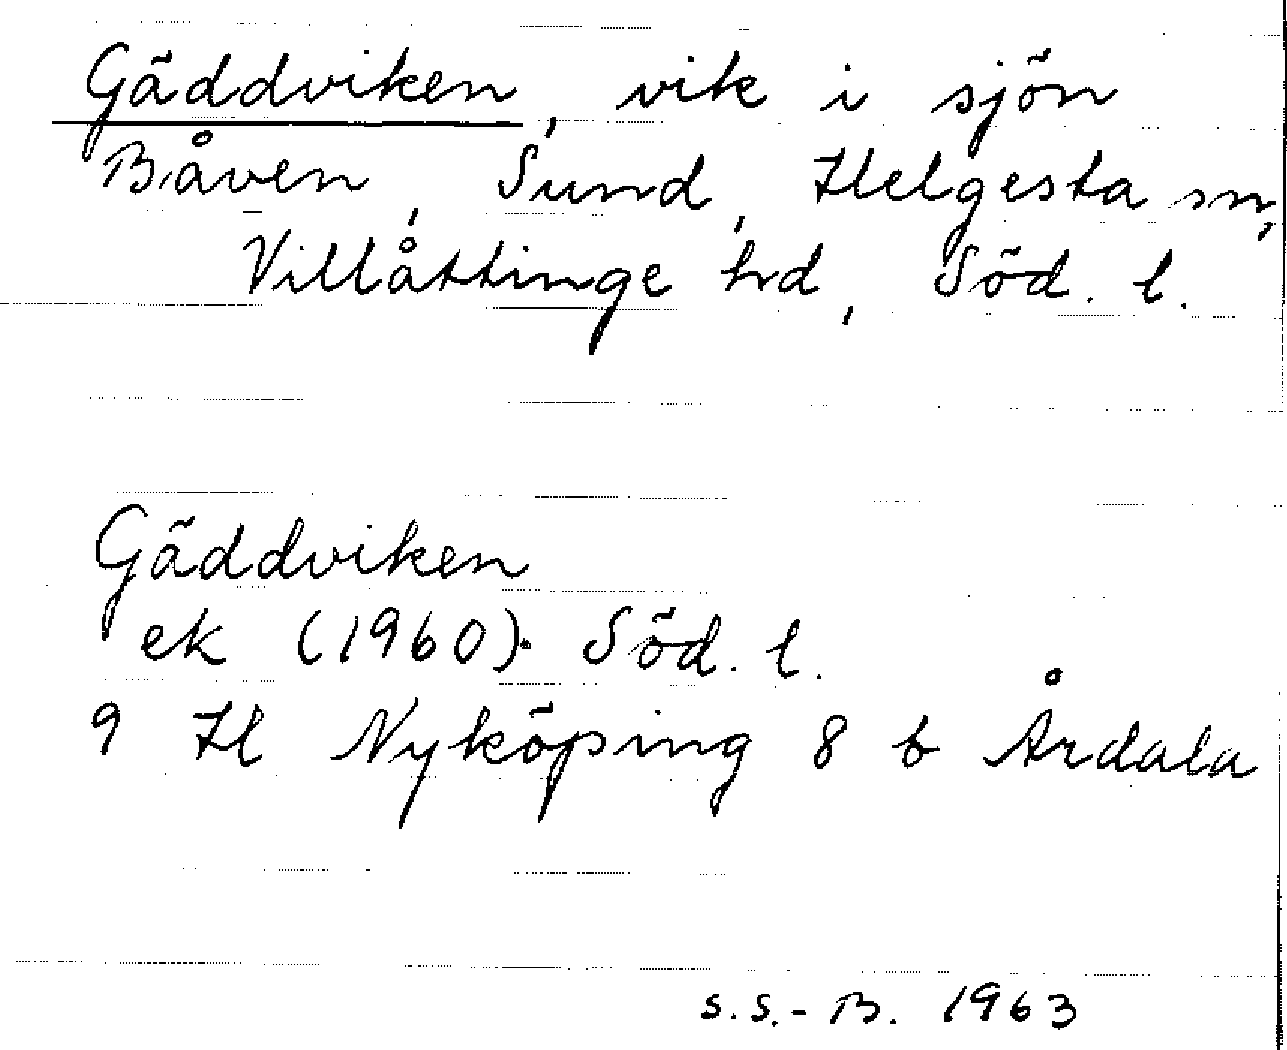 Gäddviken, vik i sjön
Båven, Sund, Helgesta sn,
Villåttinge hd, Söd. l.
Gäddviken
ek (1960). Söd. l.
9 H Nyköping 8 b Årdala
S.S.-B. 1963